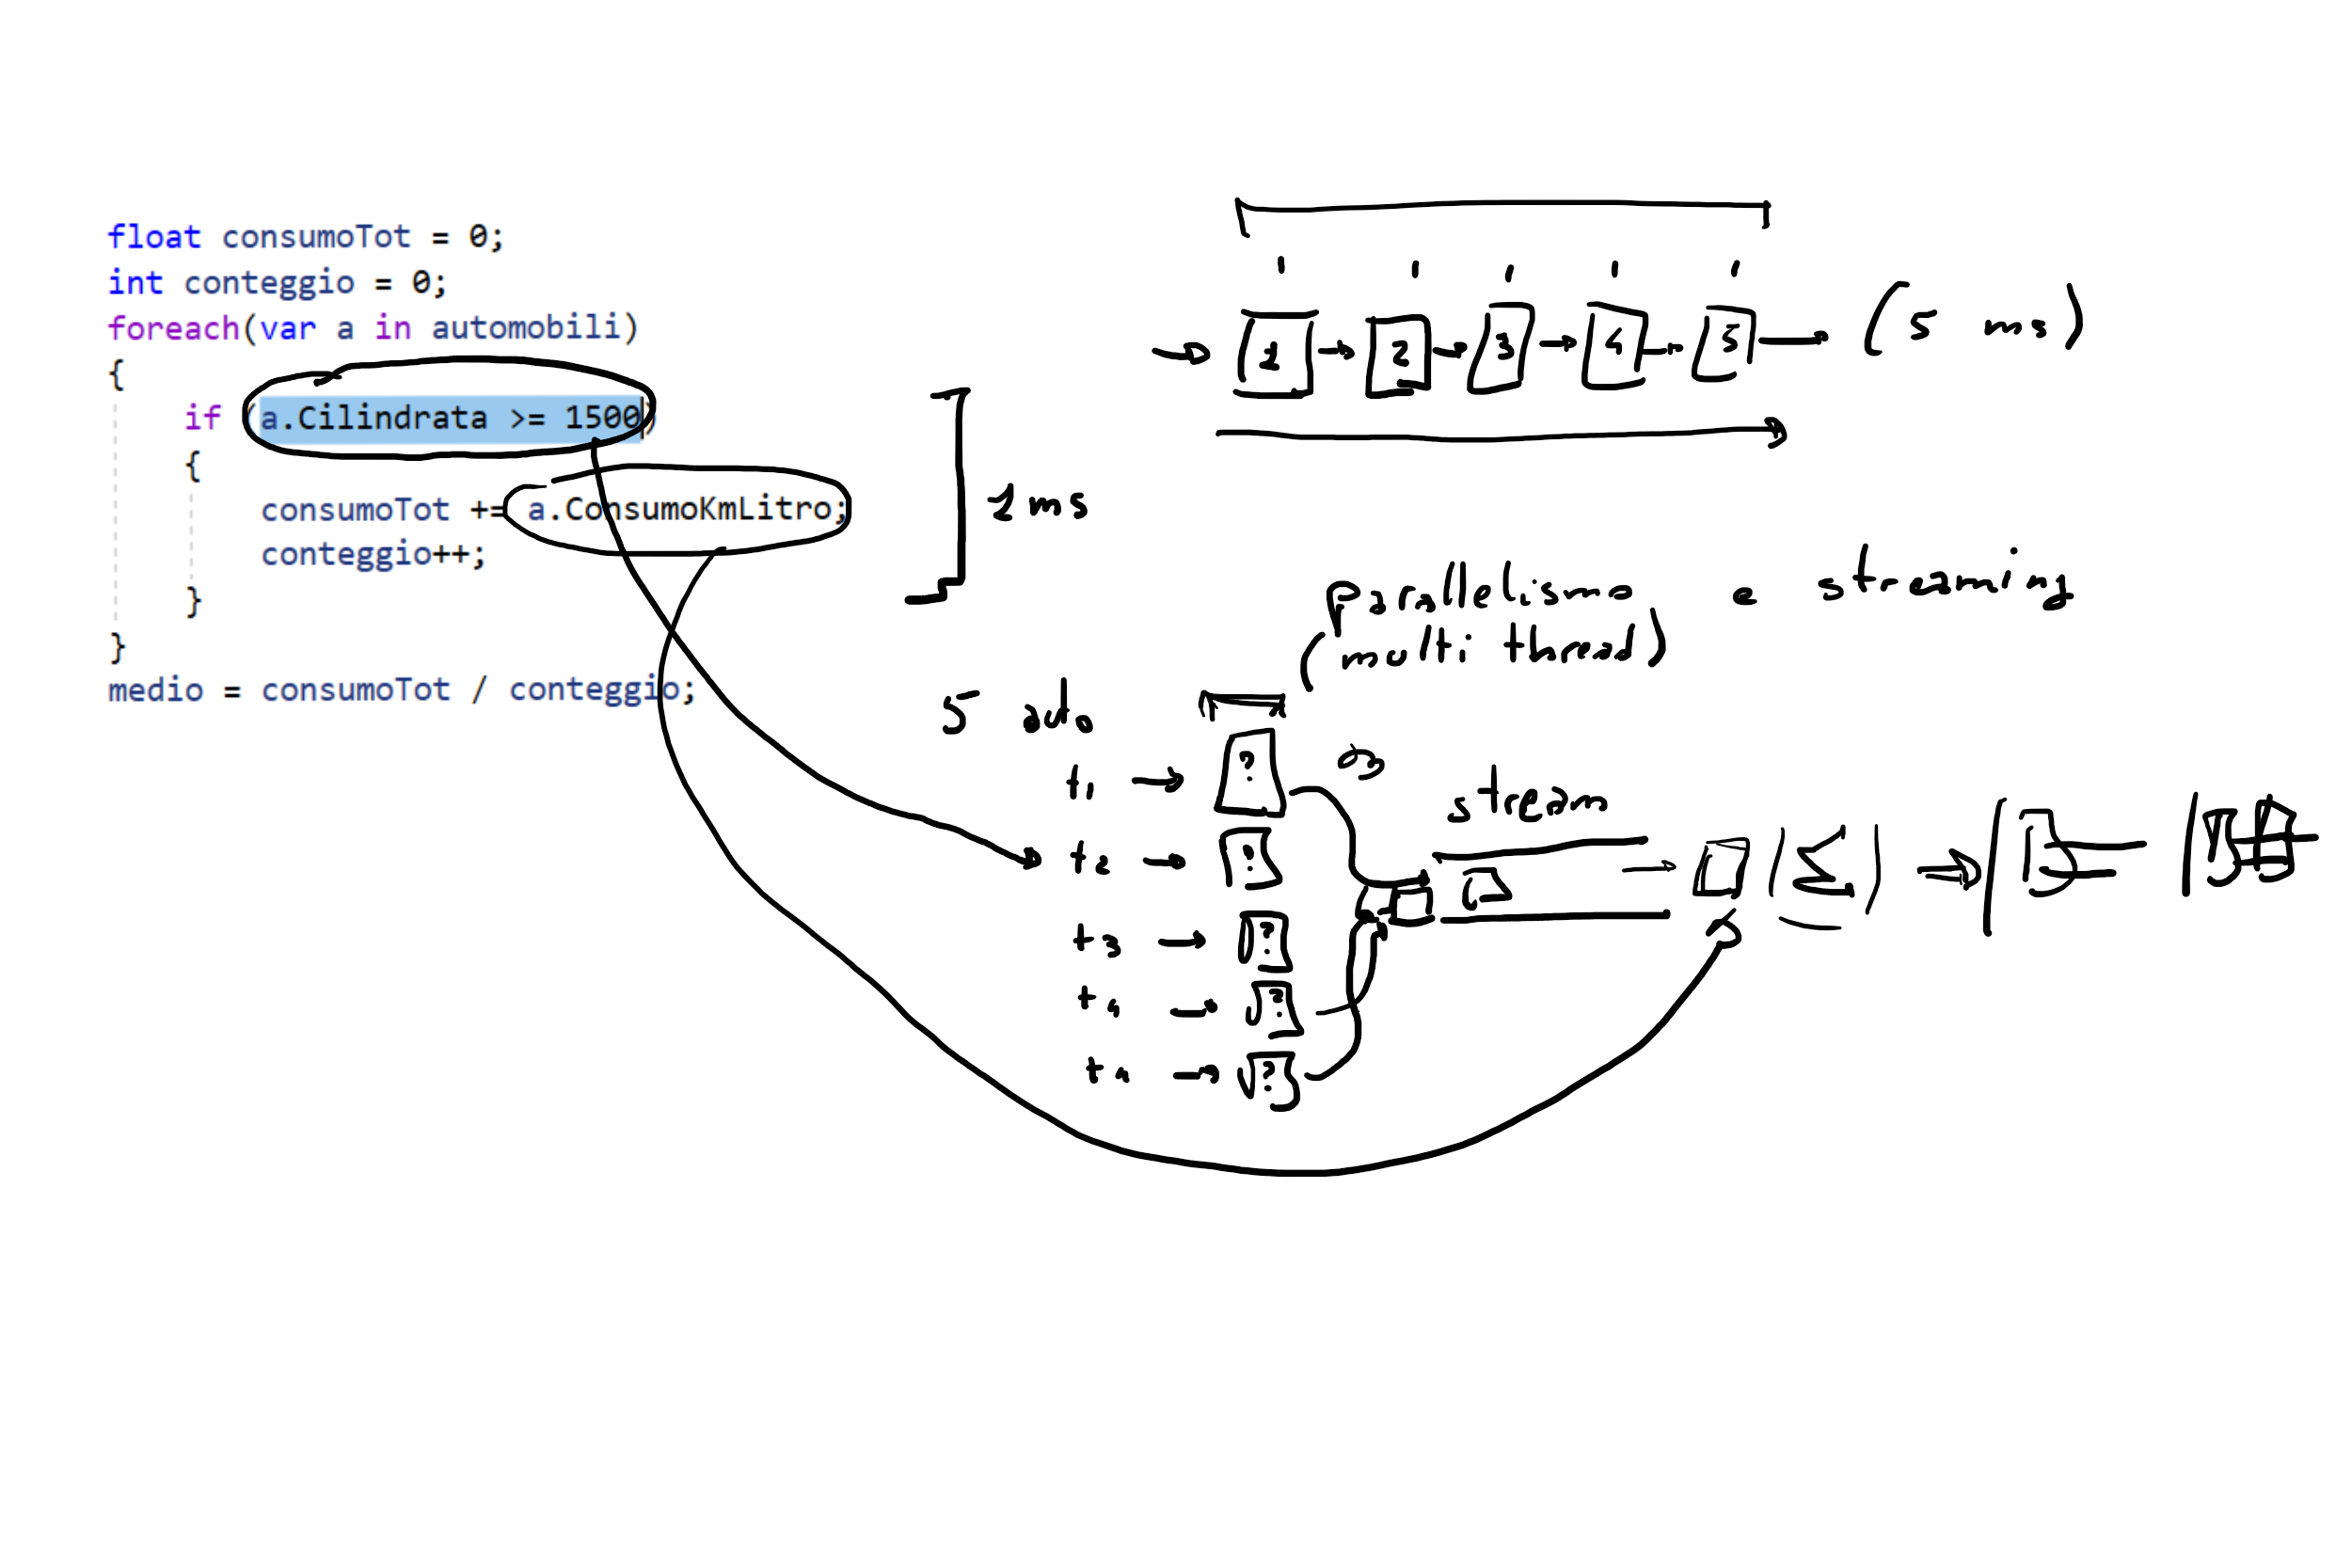 float consumoTot = 0;
int conteggio = 0;
foreach(var a in automobili)
{
if (a.Cilindrata >= 1500)
{
consumoTot += a.ConsumoKmLitro;
conteggio++;
}
}
medio = consumoTot / conteggio;
1 ms
1 2 3 4 5 (5 ms)
parallelismo e streaming
(multi thread)
5 auto
t1 ?
t2 ?
t3 ?
t4 ?
?
stream
Σ